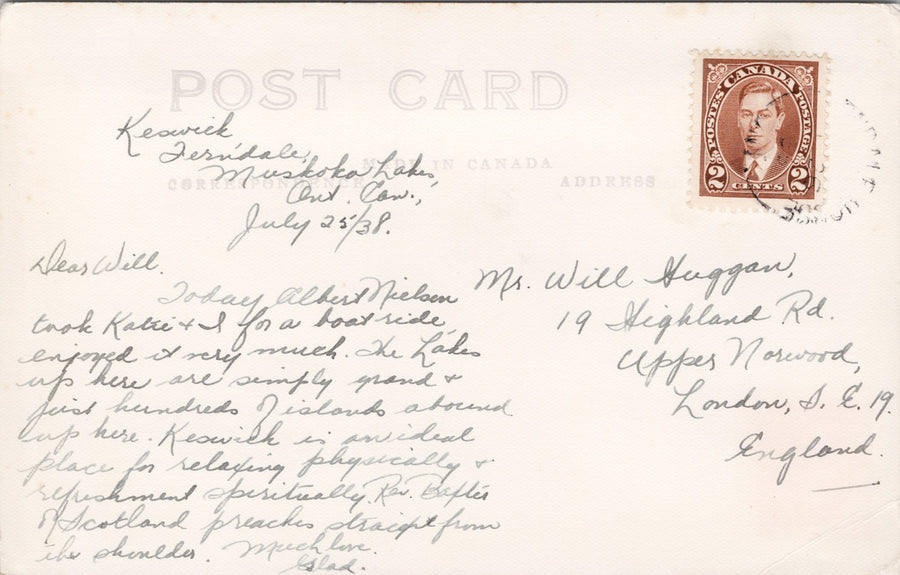 POST CARD
MADE IN CANADA
CORRESPONDENCE
ADDRESS
POSTES CANADA POSTAGE
2 CENTS 2
Keswick
Ferndale,
Muskoka Lakes,
Ont. Can.,
July 25/38.
Dear Will.
Today Albert Nielsen
took Katie & I for a boat ride
enjoyed it very much. The Lakes
up here are simply grand &
just hundreds of islands abound
up here. Keswick is an ideal
place for relaxing physically &
refreshment spiritually. Rev. Baxter
of Scotland preaches straight from
the shoulder. Much love.
Glad.
Mr. Will Huggan,
19 Highland Rd.
Upper Norwood,
London, S. E. 19.
England.